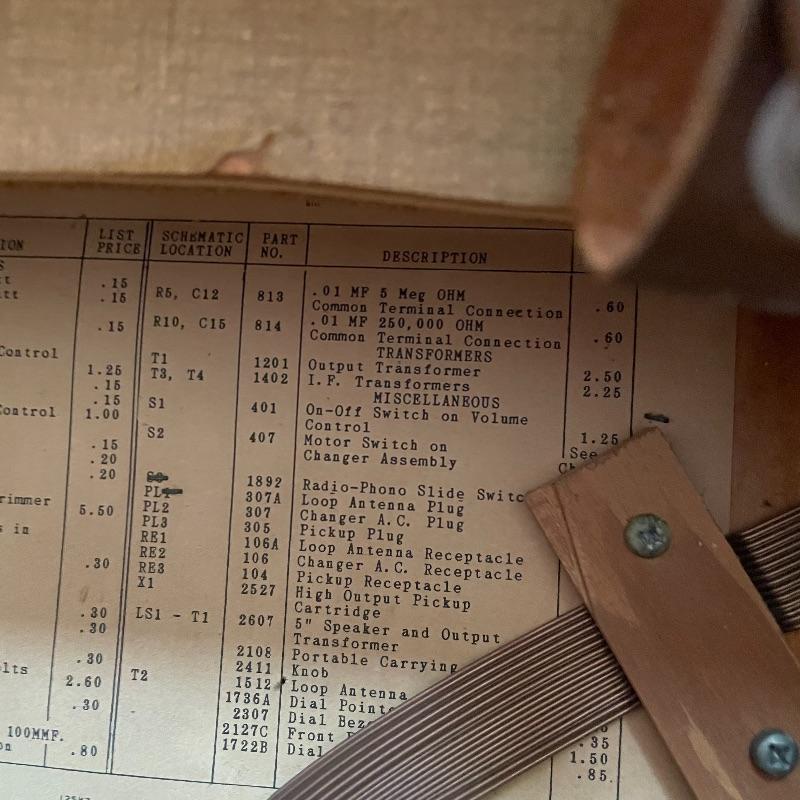 ION LIST PRICE SCHEMATIC LOCATION PART NO. DESCRIPTION
.15
.15 R5, C12 813 .01 MF 5 Meg OHM
Common Terminal Connection .60
.15 R10, C15 814 .01 MF 250,000 OHM
Common Terminal Connection .60
TRANSFORMERS
Control T1 1201 Output Transformer 2.50
1.25 T3, T4 1402 I.F. Transformers 2.25
.15
MISCELLANEOUS
.15 S1 401 On-Off Switch on Volume
Control 1.00 Control 1.25
S2 407 Motor Switch on See
.15 Changer Assembly
.20
.20 1892 Radio-Phono Slide Switc
PL 307A Loop Antenna Plug
rimmer 5.50 PL2 307 Changer A.C. Plug
PL3 305 Pickup Plug
s in RE1 106A Loop Antenna Receptacle
RE2 106 Changer A.C. Receptacle
.30 RE3 104 Pickup Receptacle
X1 2527 High Output Pickup
Cartridge
.30 LS1 - T1 2607 5" Speaker and Output
.30 Transformer
2108 Portable Carrying
.30 2411 Knob
lts 2.60 T2 1512 Loop Antenna
.30 1736A Dial Point
2307 Dial Bez
100MMF. 2127C Front .35
on .80 1722B Dial 1.50
.85